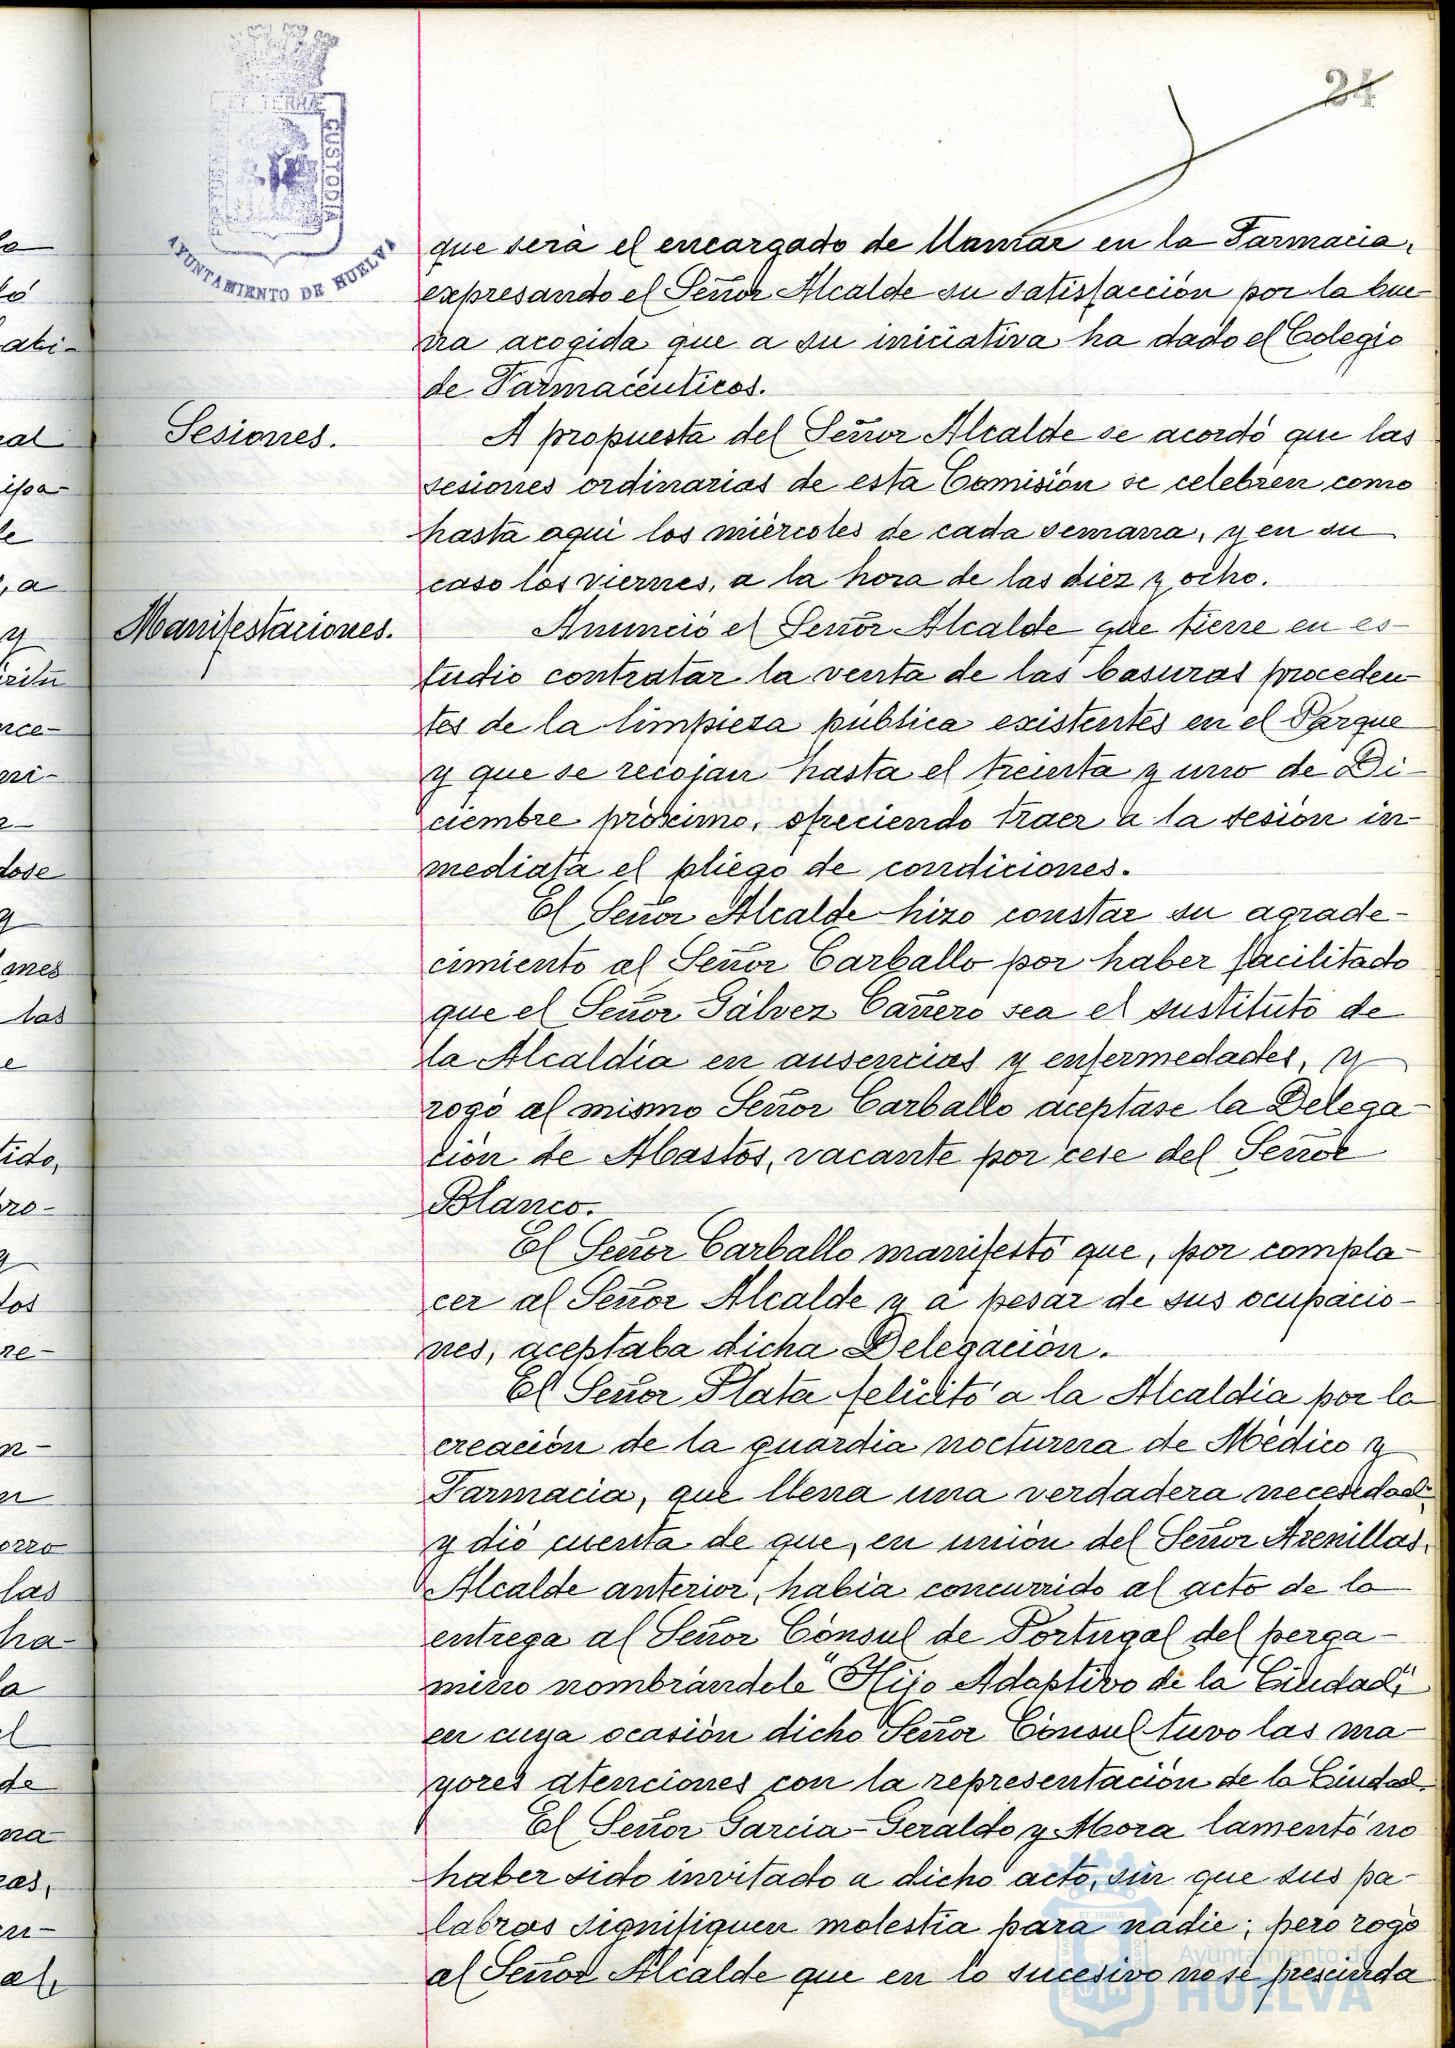 24
ET TERRÆ
CUSTODIA
AYUNTAMIENTO DE HUELVA
que será el encargado de llamar en la Farmacia,
expresando el Señor Alcalde su satisfacción por la bue-
na acogida que a su iniciativa ha dado el Colegio
de Farmacéuticos.
Sesiones.
A propuesta del Señor Alcalde se acordó que las
sesiones ordinarias de esta Comisión se celebren como
hasta aquí los miércoles de cada semana, y en su
caso los viernes, a la hora de las diez y ocho.
Manifestaciones.
Anunció el Señor Alcalde que tiene en es-
tudio contratar la venta de las basuras proceden-
tes de la limpieza pública existentes en el Parque
y que se recojan hasta el treinta y uno de Di-
ciembre próximo, ofreciendo traer a la sesión in-
mediata el pliego de condiciones.
El Señor Alcalde hizo constar su agrade-
cimiento al Señor Carballo por haber facilitado
que el Señor Gálvez Cañero sea el sustituto de
la Alcaldía en ausencias y enfermedades, y
rogó al mismo Señor Carballo aceptase la Delega-
ción de Abastos, vacante por cese del Señor
Blanco.
El Señor Carballo manifestó que, por compla-
cer al Señor Alcalde y a pesar de sus ocupacio-
nes, aceptaba dicha Delegación.
El Señor Plata felicitó a la Alcaldía por la
creación de la guardia nocturna de Médico y
Farmacia, que llena una verdadera necesidad,
y dió cuenta de que, en unión del Señor Arenillas,
Alcalde anterior, había concurrido al acto de la
entrega al Señor Cónsul de Portugal del perga-
mino nombrándole "Hijo Adoptivo de la Ciudad",
en cuya ocasión dicho Señor Cónsul tuvo las ma-
yores atenciones con la representación de la Ciudad.
El Señor García-Geraldo y Mora lamentó no
haber sido invitado a dicho acto, sin que sus pa-
labras signifiquen molestia para nadie; pero rogó
al Señor Alcalde que en lo sucesivo no se prescinda
Ayuntamiento de
HUELVA